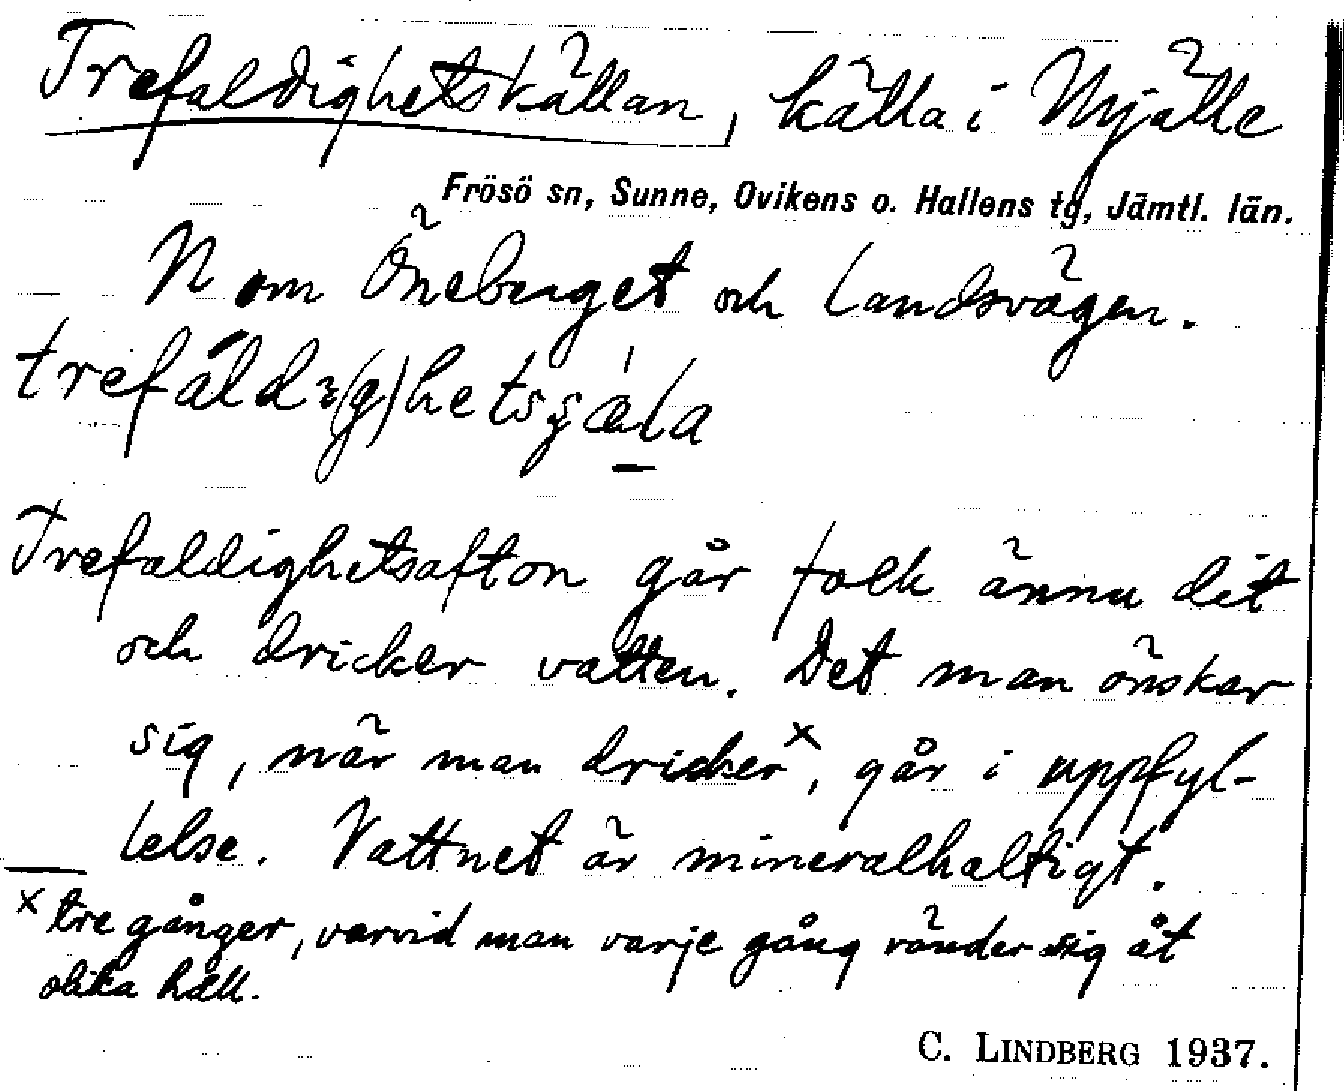 Trefaldighetskällan, källa i Mjälle
Frösö sn, Sunne, Ovikens o. Hallens tg, Jämtl. län.
N om Öneberget och landsvägen.
Trefaldighetsafton går folk ännu dit
och dricker vatten. Det man önskar
sig, när man dricker×, går i uppfyl-
lelse. Vattnet är mineralhaltigt.
× tre gånger, varvid man varje gång vänder sig åt
olika håll.
C. LINDBERG 1937.